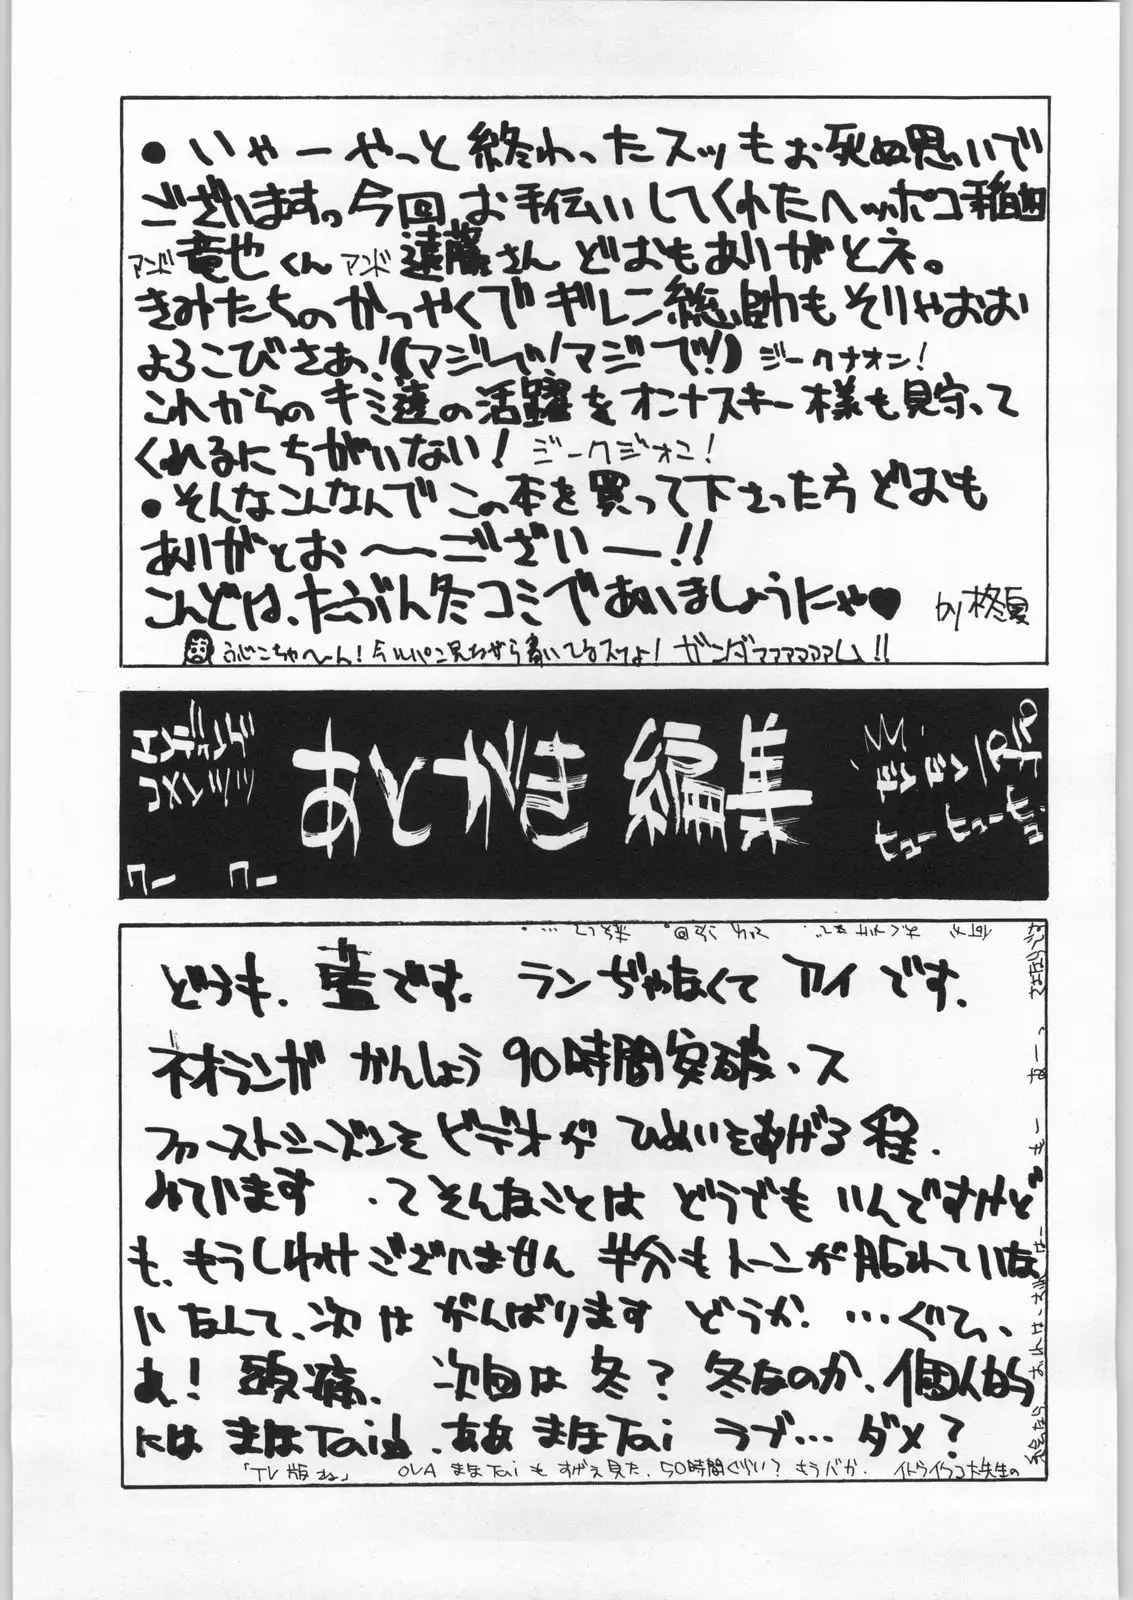 ●いゃーやっと終わったスッもお死ぬ思いで
ございますっ今回お手伝いしてくれたヘッポコ稲田
アンド竜也くんアンド遠藤さんどおもありがとネ。
きみたちのかつやくでギレン総帥もそりゃおお
よろこびさぁ!(マジで!マジで!)ジークナオン!
これからのキミ達の活躍をオンナスキー様も見守って
くれるにちがいない!ジークジオン!
●そんなこんなんでこの本を買って下さった方どおも
ありがとお〜ございー!!
こんどは、たぶん冬コミであいましょうにゃ♥ by柊夏
ふじこちゃ〜ん!今ルパン見ながら書いてるスよ!ガンダァァァァァム!!
エンディング
コメンツ
ワー ワー
あとがき編集
ドンドン
ヒューヒューヒュ
どうも、藍です。ランぢゃなくてアイです。
ネオランガかんしょう90時間突破、ス
ファーストシーズンをビデオがひめいをあげる程、
みています、てそんなことはどうでもいんですけど
も、もうしわけございません半分もトーンが貼れていな
いなんて、次はがんばりますどうか…ぐてっ、
あ!頭痛、次回は冬?冬なのか、個人的
にはまほTaiか、ああまほTaiラブ…ダメ?
「TV版ね」 OVAまほTaiもすげぇ見た、50時間ぐらい?もうバカ、